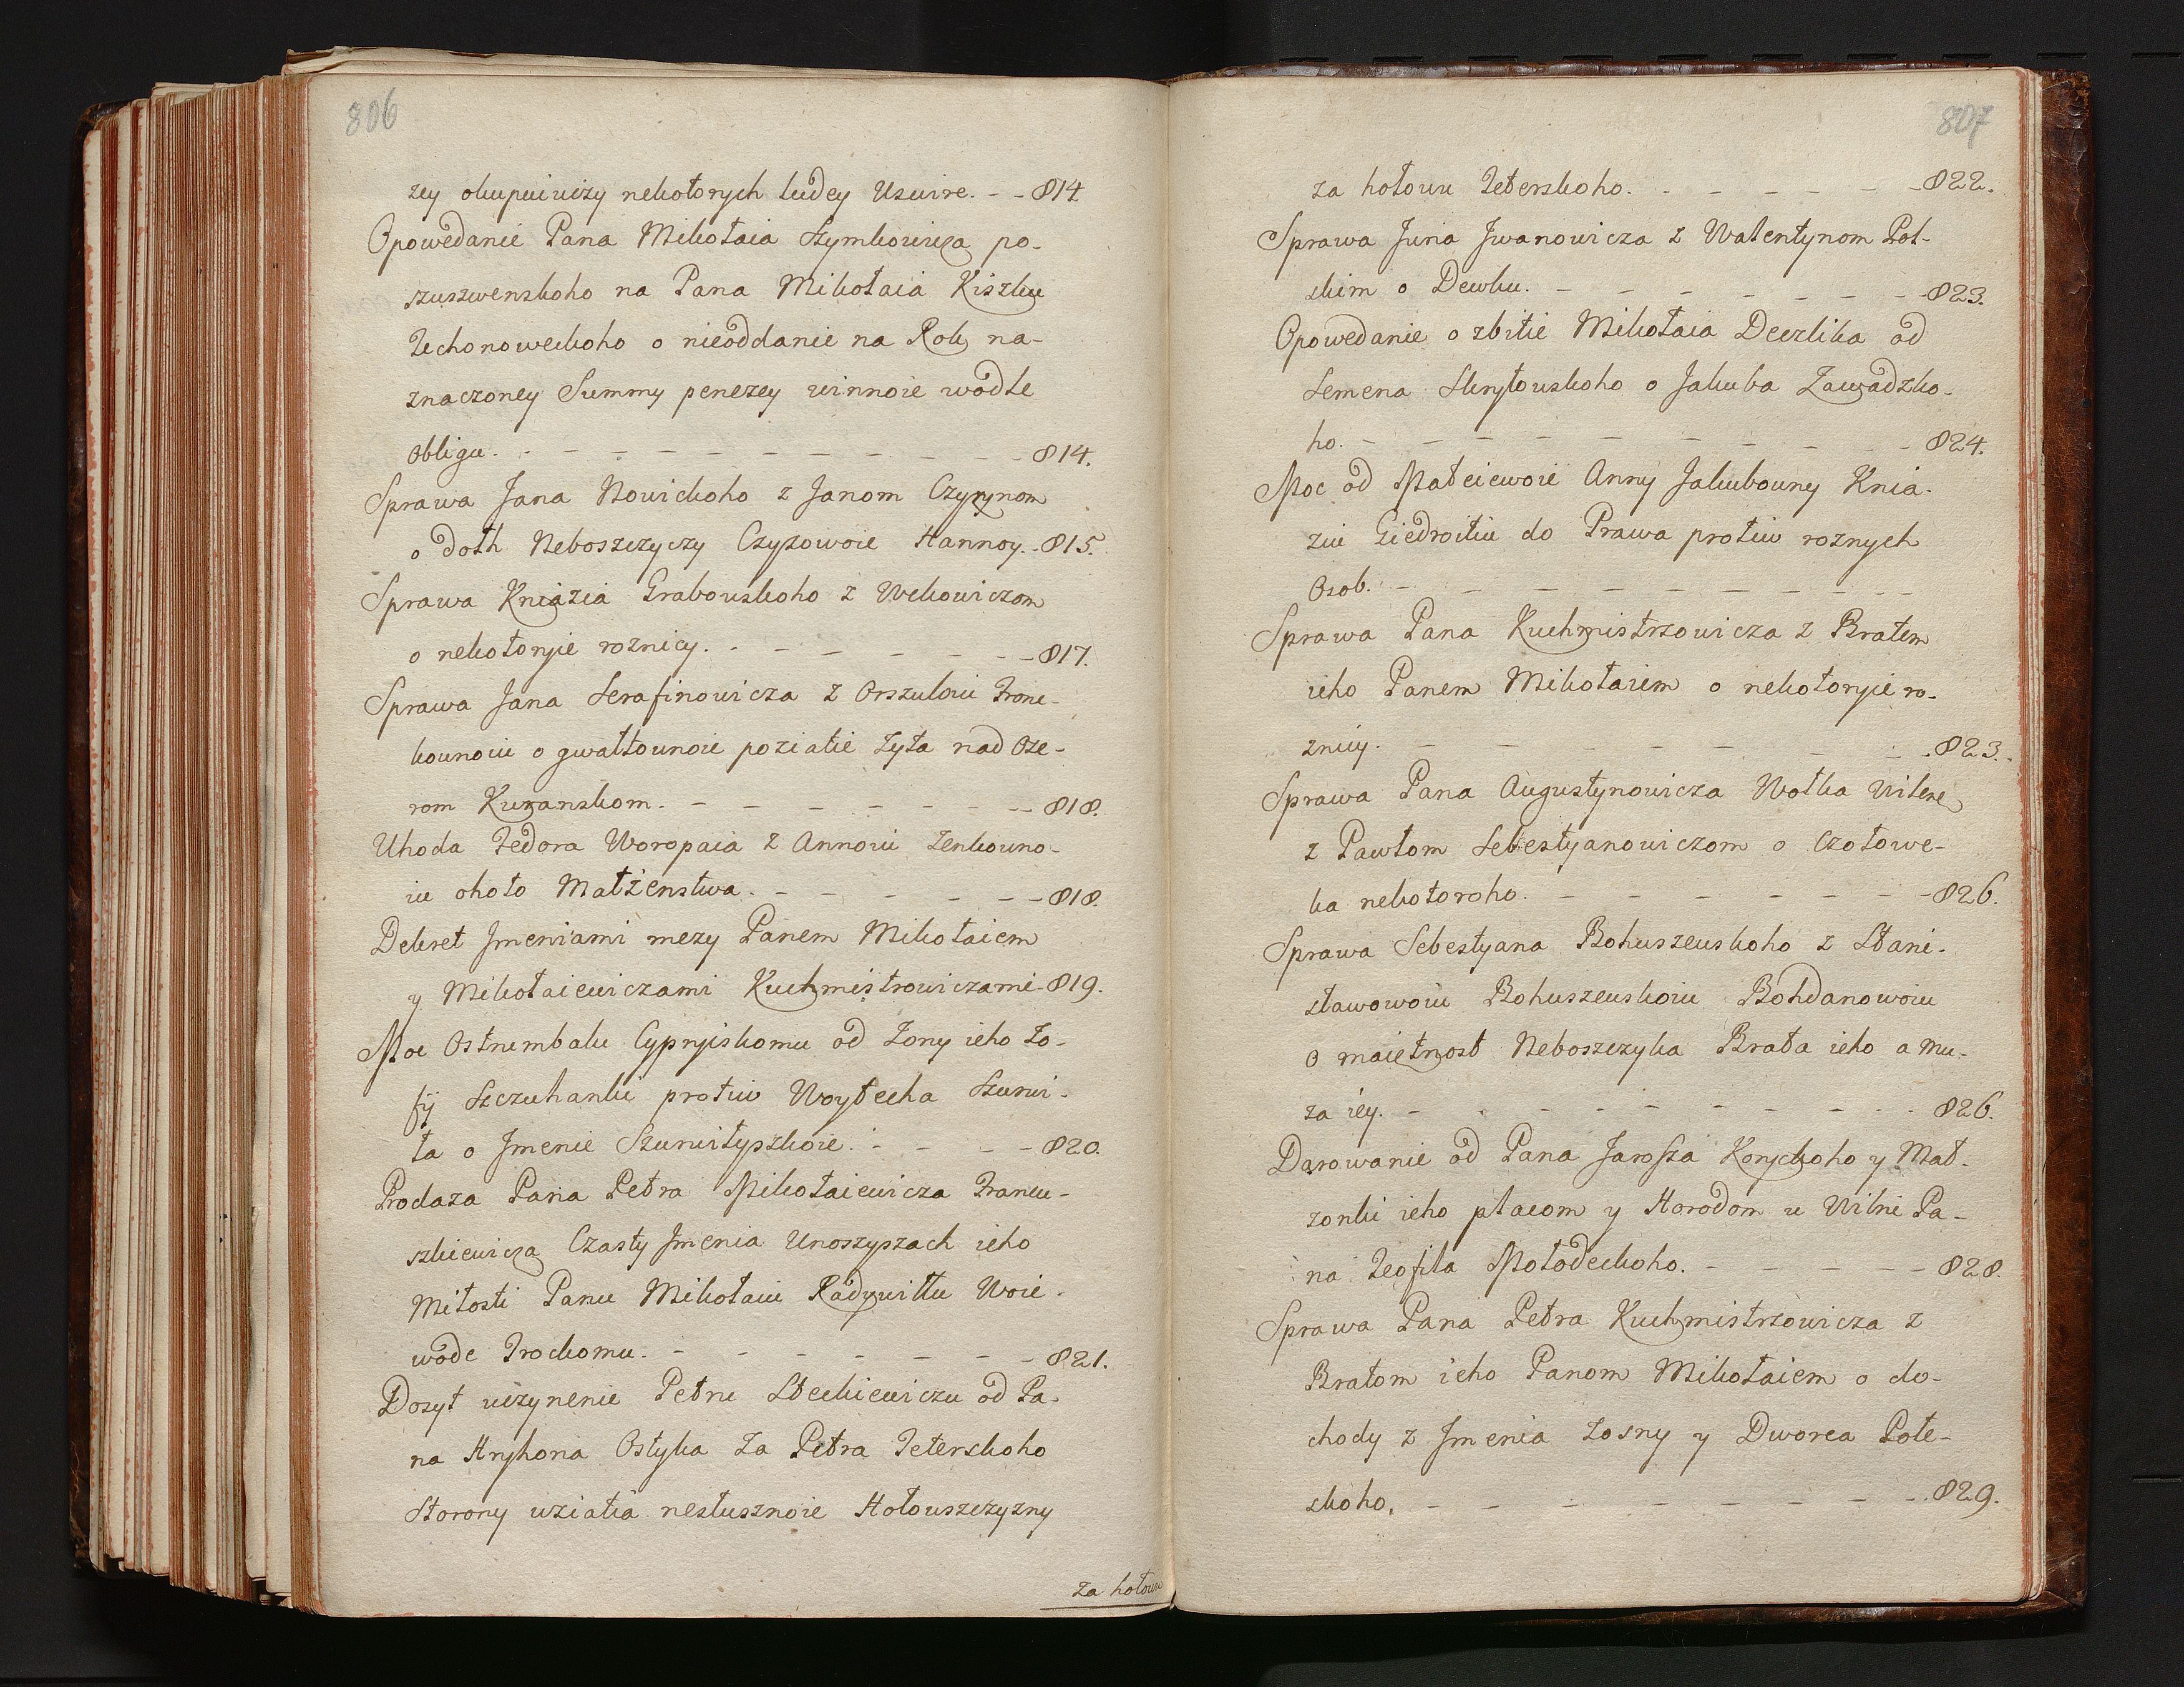 806
zey okupuiuczy nekotorych ludey Uswire. - - 814
Opowedanie Pana Mikołaia Szymkowicza po-
szuszwenskoho na Pana Mikołaia Kiszku
Techonoweckoho o nieoddanie na Rok na-
znaczoney Summy penezey winnoie wodle
obligu. - - - - - - - - - - 814.
Sprawa Jana Nowickoho z Janom Czyzynom
o dołh Neboszczyczy Czyzowoie Hannoy. - 815.
Sprawa Kniazia Grabouskoho z Wekowiczom
o nekotoryie roznicy. - - - - - - 817.
Sprawa Jana Serafinowicza z Orszuloiu Trone-
kounoiu o gwałtounoie poziatie Zyta nad Oze-
rom Kuranskom. - - - - - - - 818.
Uhoda Fedora Woropaia z Annoiu Zenkouno-
iu około Małżenstwa. - - - - - - 818.
Dekret Jmeniami mezy Panem Mikołaiem
y Mikołaiewiczami Kuchmistrowiczami - 819.
Moc Ostrumbalu Cypryiskomu od Zony ieho Zo-
fij Szczuhanki protiw Woytecha Szurwi-
ta o Jmenie Szurwityszkoie. - - - - 820.
Prodaza Pana Petra Mikołaiewicza Francu-
szkiewicza Czasty Jmenia Unoszyszach ieho
Miłosti Panu Mikołaiu Radywiłłu Woie-
wode Trockomu. - - - - - - - 821.
Dosyt uczynenie Petru Steckiewiczu od Pa-
na Hryhora Ostyka Za Petra Teterskoho
Storony uziatia nesłusznoie Hołouszczyzny
za hołowu
807
za hołowu Teterskoho. - - - - - - 822.
Sprawa Juna Jwanowicza z Walentynom Pol-
skim o Dewku. - - - - - - - - 823.
Opowedanie o zbitie Mikołaia Deczlika od
Semena Skryłouskoho o Jakuba Zawadzko-
ho. - - - - - - - - - 824.
Moc od Mateiewoie Anny Jakubouny Knia-
ziu Giedroitiu do Prawa protiw roznych
Osob. - - - - - - - - - -
Sprawa Pana Kuchmistrzowicza z Bratem
ieho Panem Mikołaiem o nekotoryie ro-
znicy. - - - - - - - - 823.
Sprawa Pana Augustynowicza Wołka Witere
z Pawłom Sebestyanowiczom o Czołowe-
ka nekotoroho. - - - - - - - 826.
Sprawa Sebestyana Bohuszeuskoho z Stani-
sławowoiu Bohuszeuskoiu Bohdanowoiu
o maiętnost Neboszczyka Brata ieho a mu-
za iey. - - - - - - - - - 826.
Darowanie od Pana Jarosza Koryckoho y Mał-
zonki ieho płacom y Horodom u Wilni Pa-
na Teofila Mołodeckoho. - - - - - 828.
Sprawa Pana Petra Kuchmistrzowicza z
Bratom ieho Panom Mikołaiem o do-
chody z Jmenia Zosny y Dworca Pole-
skoho, - - - - - - - - 829.